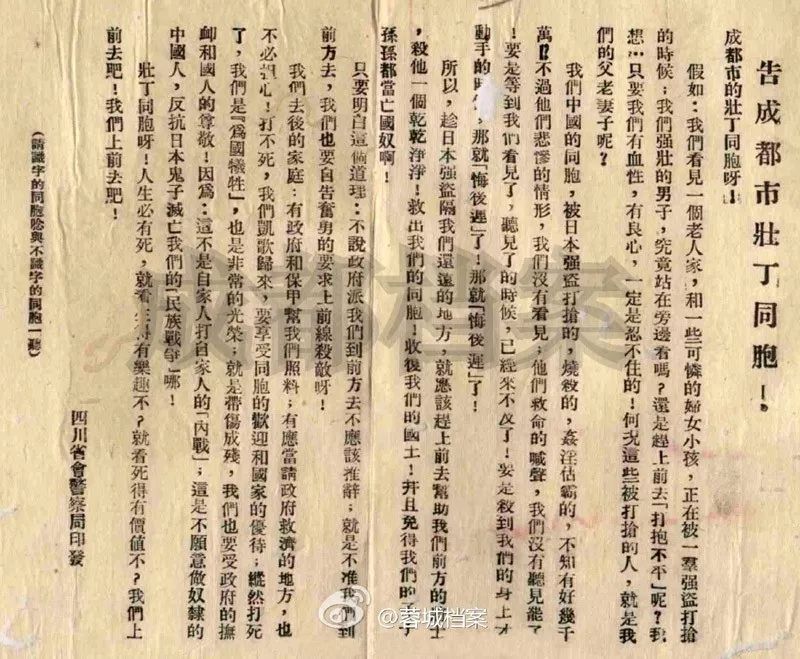 告成都市壯丁同胞！
成都市的壯丁同胞呀！
假如：我們看見一個老人家，和一些可憐的婦女小孩，正在被一羣强盜打搶
的時候；我們强壯的男子，究竟站在旁邊看嗎？還是趕上前去「打抱不平」呢？我
想：只要我們有血性，有良心，一定是忍不住的！何况這些被打搶的人，就是我
們的父老妻子呢？
我們中國的同胞，被日本强盜打搶的，燒殺的，姦淫估霸的，不知有好幾千
萬！不過他們悲慘的情形，我們沒有看見；他們救命的喊聲，我們沒有聽見罷了
！要是等到我們看見了，聽見了的時候，已經來不及了！要是殺到我們的身上才
動手的時，那就「悔後遲」了！那就「悔後遲」了！
所以，趁日本强盜隔我們還遠的地方，就應該趕上前去幫助我們前方的士
，殺他一個乾乾淨淨！救出我們的同胞！收復我們的國土！幷且免得我們的
孫孫都當亡國奴啊！
只要明白這個道理：不說政府派我們到前方去不應該推辭；就是不准我們到
前方去，我們也要自告奮勇的要求上前線殺敵呀！
我們去後的家庭：有政府和保甲幫我們照料；有應當請政府救濟的地方，也
不必担心！打不死，我們凱歌歸來，要享受同胞的歡迎和國家的優待；縱然打死
了，我們是「爲國犧牲」，也是非常的光榮；就是帶傷成殘，我們也要受政府的撫
卹和國人的尊敬！因爲：這不是自家人打自家人的「內戰」；這是不願意做奴隸的
中國人，反抗日本鬼子滅亡我們的「民族戰爭」哪！
壯丁同胞呀！人生必有死，就看生得有樂趣不？就看死得有價值不？我們上
前去吧！我們上前去吧！
四川省會警察局印發
（請識字的同胞唸與不識字的同胞一聽）
蓉城档案
@蓉城档案